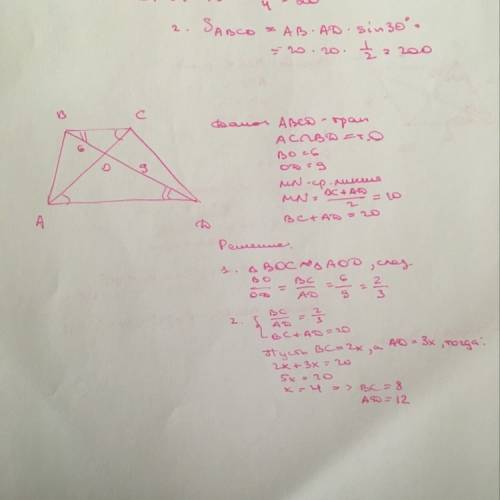 4
2. SABCD = AB · AD · sin 30° =
= 20 · 20 · 1/2 = 200
B C
6 O 9
A D
Дано: ABCD - трап
AC∩BD = т.O
BO = 6
OD = 9
MN - ср. линия
MN = (BC + AD)/2 = 10
BC + AD = 20
Решение.
1. △BOC ~ △AOD, след.
BO/OD = BC/AD = 6/9 = 2/3
2. { BC/AD = 2/3
BC + AD = 20
Пусть BC = 2x, а AD = 3x, тогда:
2x + 3x = 20
5x = 20
x = 4 => BC = 8
AD = 12